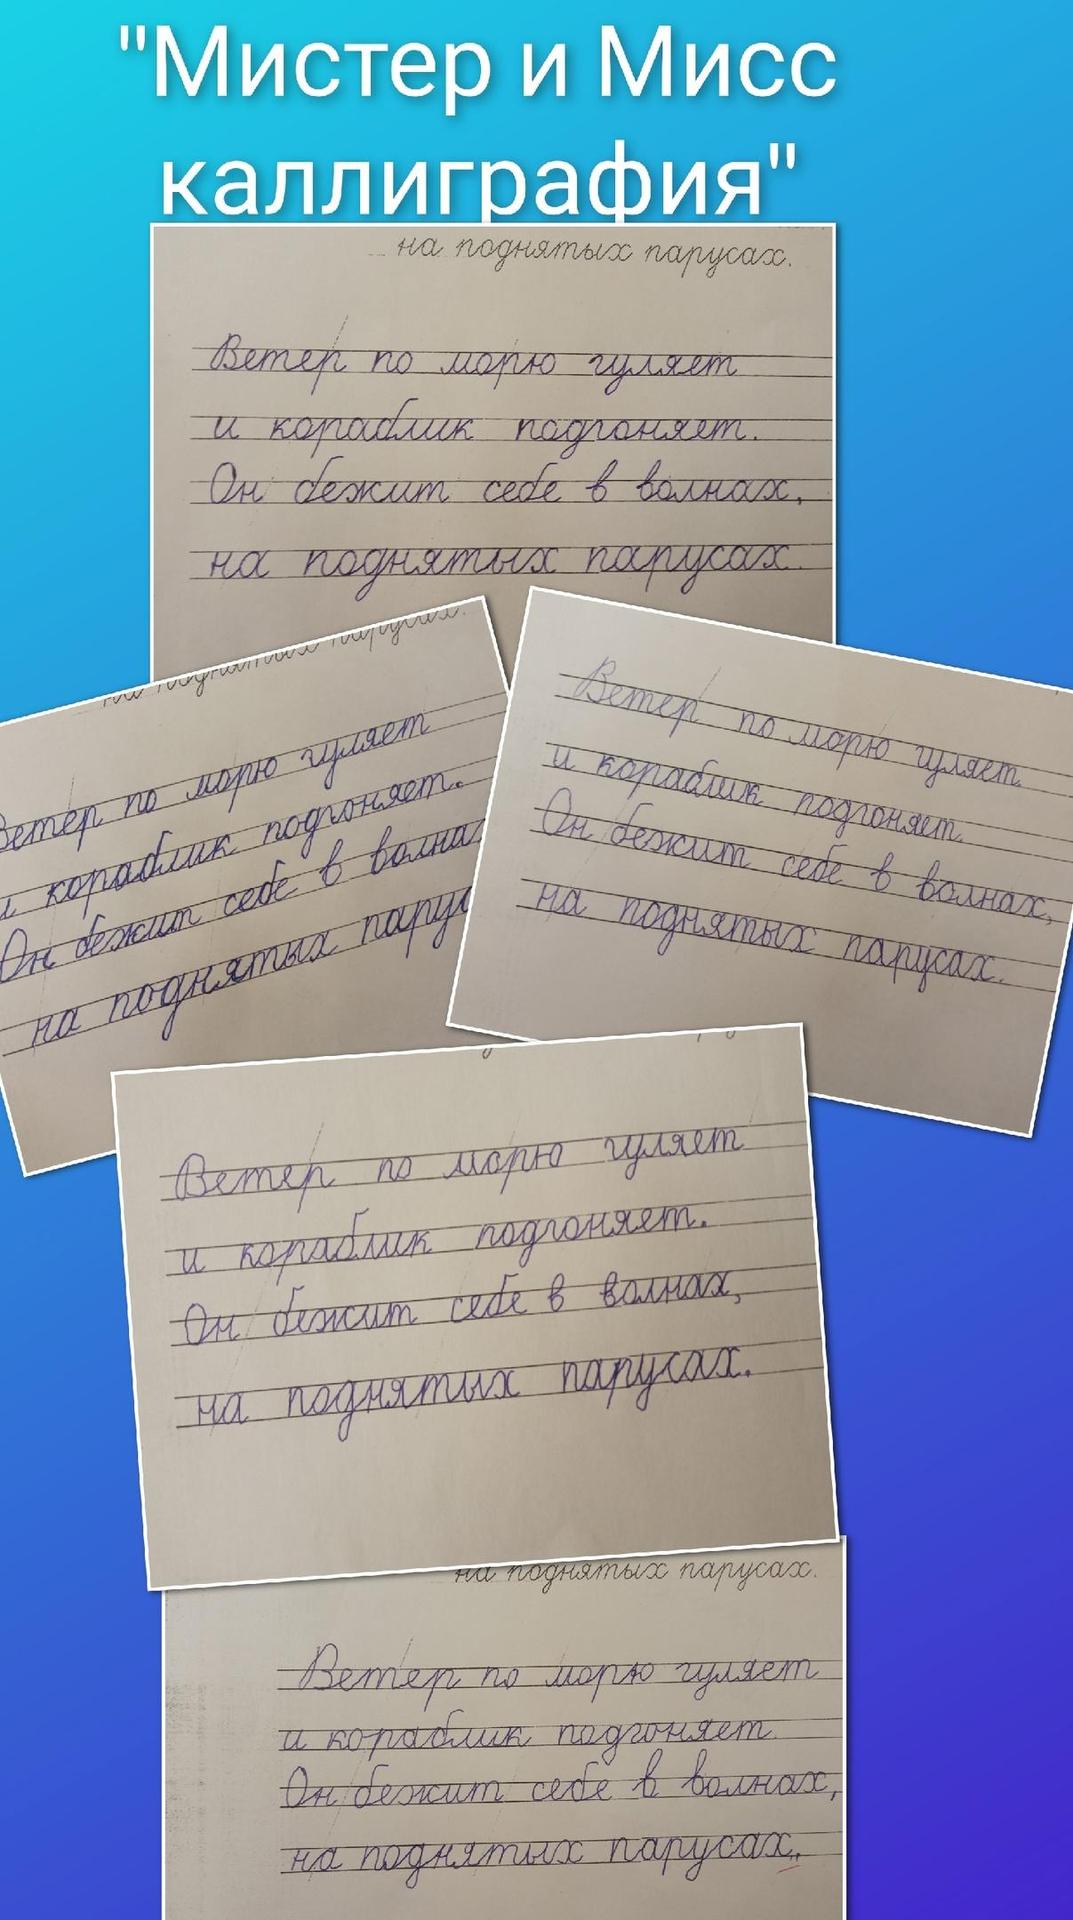 "Мистер и Мисс
каллиграфия"
на поднятых парусах.
Ветер по морю гуляет
и кораблик подгоняет.
Он бежит себе в волнах,
на поднятых парусах.
на поднятых парусах.
Ветер по морю гуляет
и кораблик подгоняет.
Он бежит себе в волнах
на поднятых парус
Ветер по морю гуляет
и кораблик подгоняет.
Он бежит себе в волнах,
на поднятых парусах.
Ветер по морю гуляет
и кораблик подгоняет.
Он бежит себе в волнах,
на поднятых парусах.
на поднятых парусах.
Ветер по морю гуляет
и кораблик подгоняет.
Он бежит себе в волнах,
на поднятых парусах.